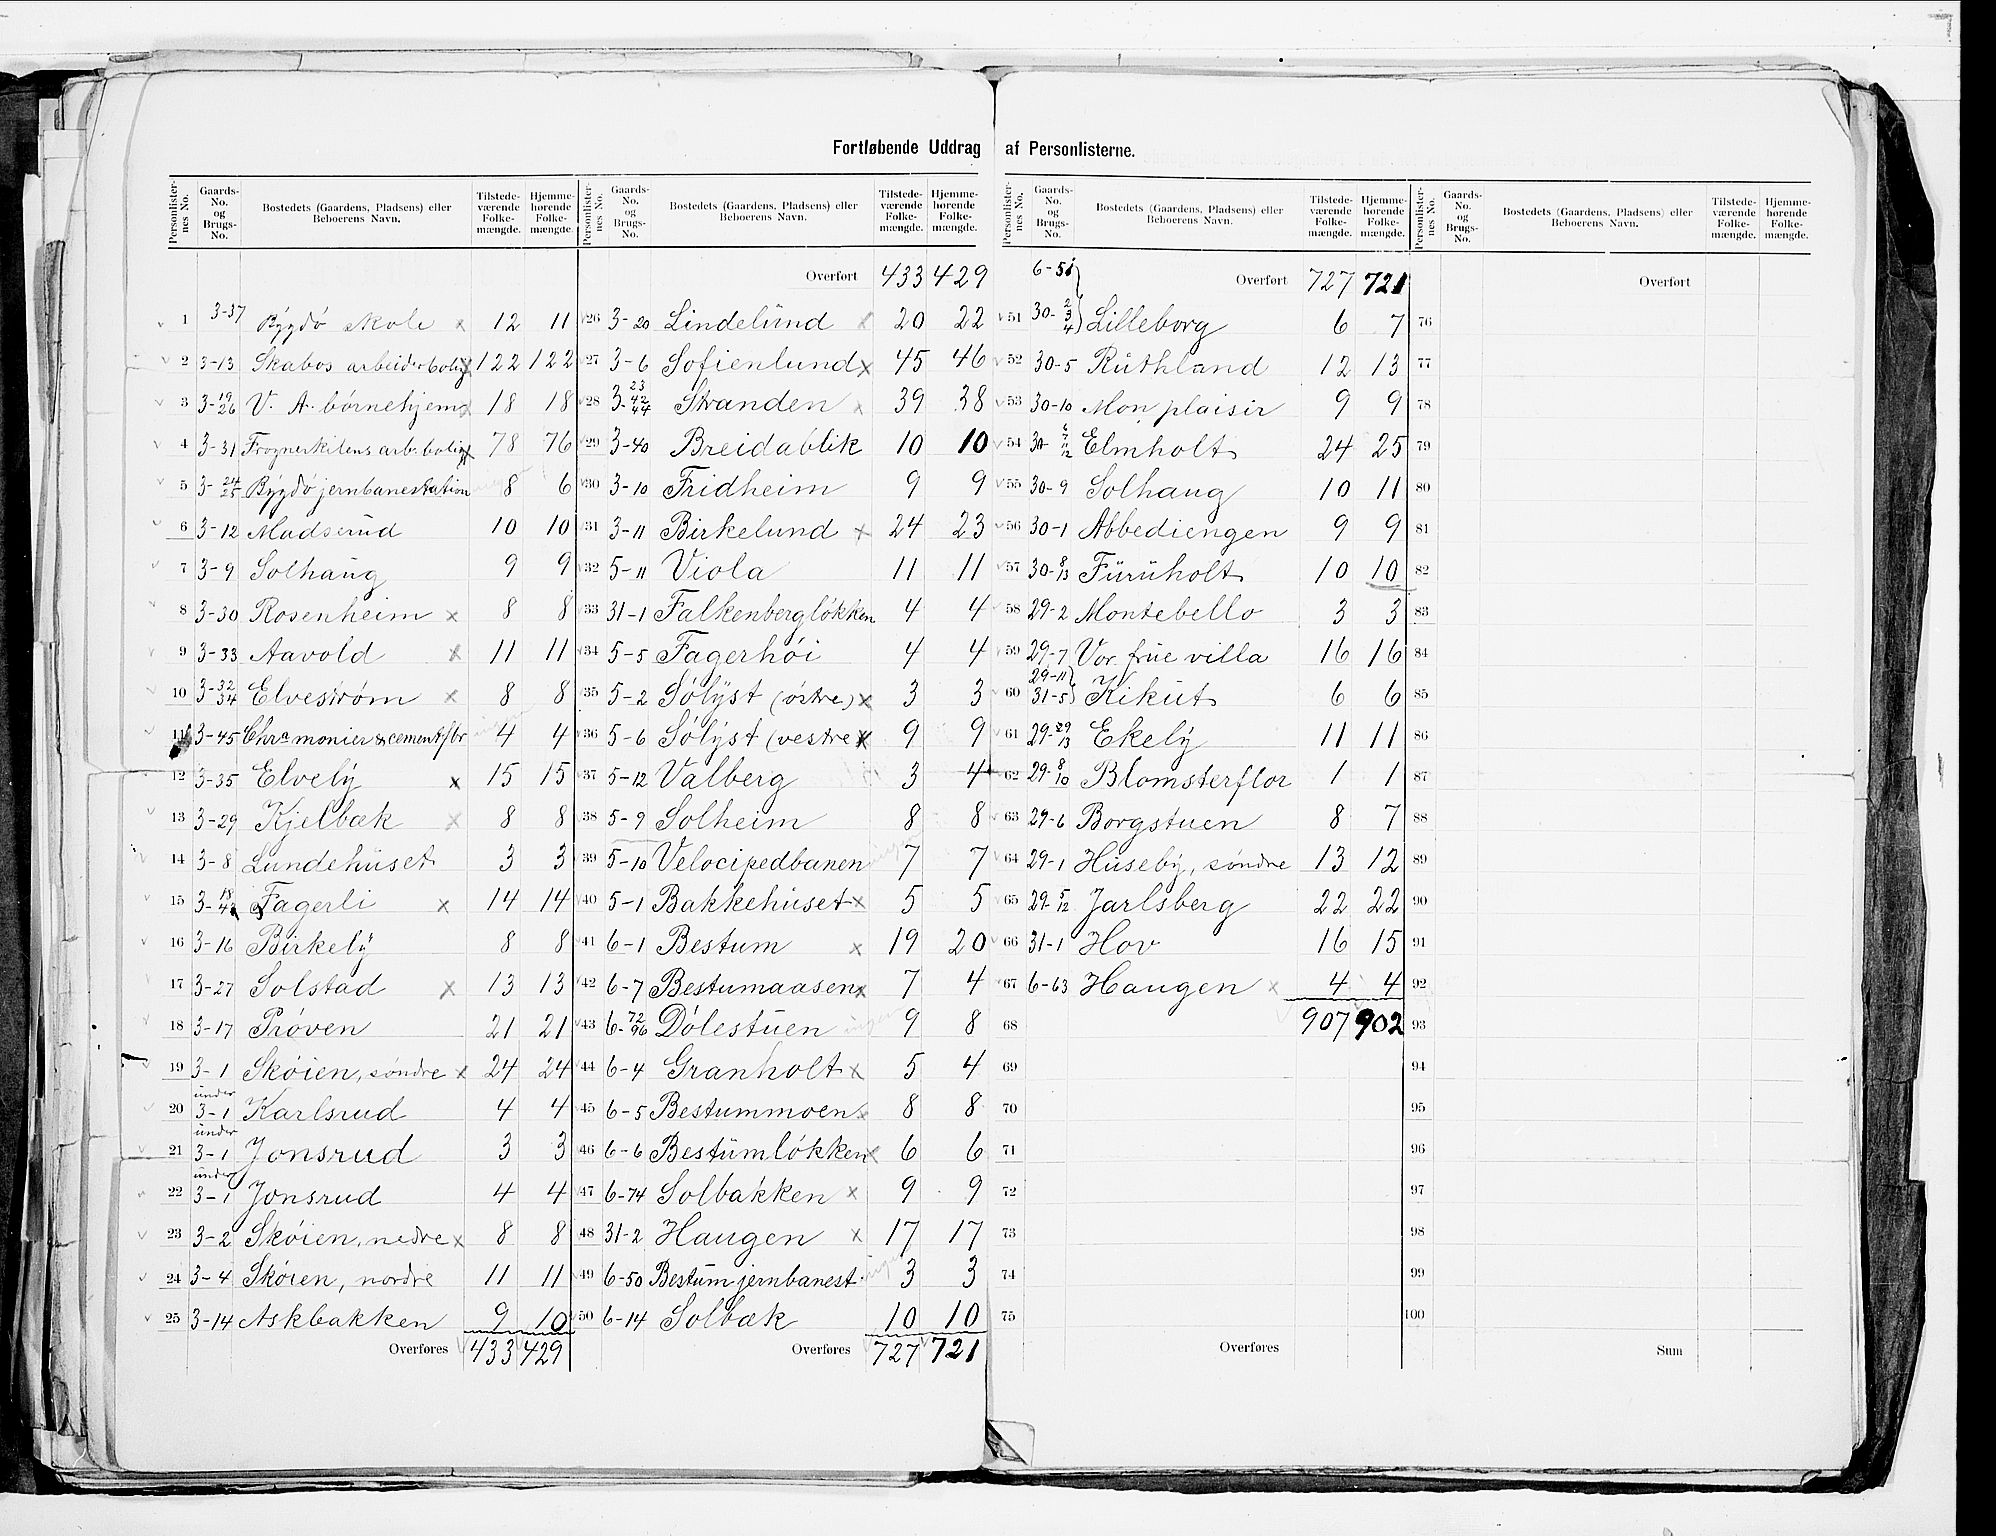 Fortløbende Uddrag af Personlisterne.
Personlisternes No. Gaards-No. og Brugs-No. Bostedets (Gaardens, Pladsens) eller Beboerens Navn. Tilstedeværende Folkemængde. Hjemmehørende Folkemængde.
1 3-37 Bygdö skole x 12 11
2 3-13 Skabos arbeiderbolig x 122 122
3 3-19 26 V. A. börnehjem x 18 18
4 3-31 Frognerkilens arb. bolig x 78 76
5 3-24 25 Bygdö jernbanestation 8 6
6 3-12 Madserud 10 10
7 3-9 Solhaug 9 9
8 3-30 Rosenheim x 8 8
9 3-33 Aavold x 11 11
10 3-32 34 Elvestrøm x 8 8
11 3-45 Chra monier & cementfbr 4 4
12 3-35 Elvely x 15 15
13 3-29 Kjelbæk x 8 8
14 3-8 Lundehuset 3 3
15 3-18 Fagerli x 14 14
16 3-16 Birkely 8 8
17 3-27 Solstad x 13 13
18 3-17 Prøven 21 21
19 3-1 Skøien, søndre x 24 24
20 under 3-1 Karlsrud 4 4
21 under 3-1 Jonsrud 3 3
22 under 3-1 Jonsrud 4 4
23 3-2 Skøien, nedre x 8 8
24 3-4 Skøien, nordre 11 11
25 3-14 Askbakken 9 10
Overføres 433 429
Personlisternes No. Gaards-No. og Brugs-No. Bostedets (Gaardens, Pladsens) eller Beboerens Navn. Tilstedeværende Folkemængde. Hjemmehørende Folkemængde.
Overført 433 429
26 3-20 Lindelund x 20 22
27 3-6 Sofienlund x 45 46
28 3-23 42 44 Stranden x 39 38
29 3-40 Breidablik 10 10
30 3-10 Fridheim 9 9
31 3-11 Birkelund x 24 23
32 5-11 Viola 11 11
33 31-1 Falkenbergløkken 4 4
34 5-5 Fagerhöi 4 4
35 5-2 Sølyst (østre) x 3 3
36 5-6 Sølyst (vestre x 9 9
37 5-12 Valberg 3 4
38 5-9 Solheim 8 8
39 5-10 Velocipedbanen 7 7
40 5-1 Bakkehuset x 5 5
41 6-1 Bestum x 19 20
42 6-7 Bestumaasen x 7 4
43 6-72 96 Dölestuen ingen 9 8
44 6-4 Granholt x 5 4
45 6-5 Bestummoen x 8 8
46 6-6 Bestumløkken x 6 6
47 6-74 Solbakken x 9 9
48 31-2 Haugen x 17 17
49 6-50 Bestum jernbanest. ingen 3 3
50 6-14 Solbæk 10 10
Overføres 727 721
Personlisternes No. Gaards-No. og Brugs-No. Bostedets (Gaardens, Pladsens) eller Beboerens Navn. Tilstedeværende Folkemængde. Hjemmehørende Folkemængde.
6-51 Overført 727 721
51 30-2 3 4 Lilleborg 6 7
52 30-5 Ruthland 12 13
53 30-10 Mon plaisir 9 9
54 30-6 7 12 Elmholt 24 25
55 30-9 Solhaug 10 11
56 30-1 Abbediengen 9 9
57 30-8 13 Furuholt 10 10
58 29-2 Montebello 3 3
59 29-7 Vor frue villa 16 16
60 29-11 31-5 Kikut 6 6
61 29-29 13 Ekely 11 11
62 29-8 10 Blomsterflor 1 1
63 29-6 Borgstuen 8 7
64 29-1 Huseby, søndre 13 12
65 29-5 12 Jarlsberg 22 22
66 31-1 Hov 16 15
67 6-63 Haugen x 4 4
68 907 902
69
70
71
72
73
74
75
Overføres
Personlisternes No. Gaards-No. og Brugs-No. Bostedets (Gaardens, Pladsens) eller Beboerens Navn. Tilstedeværende Folkemængde. Hjemmehørende Folkemængde.
Overført
76
77
78
79
80
81
82
83
84
85
86
87
88
89
90
91
92
93
94
95
96
97
98
99
100
Sum